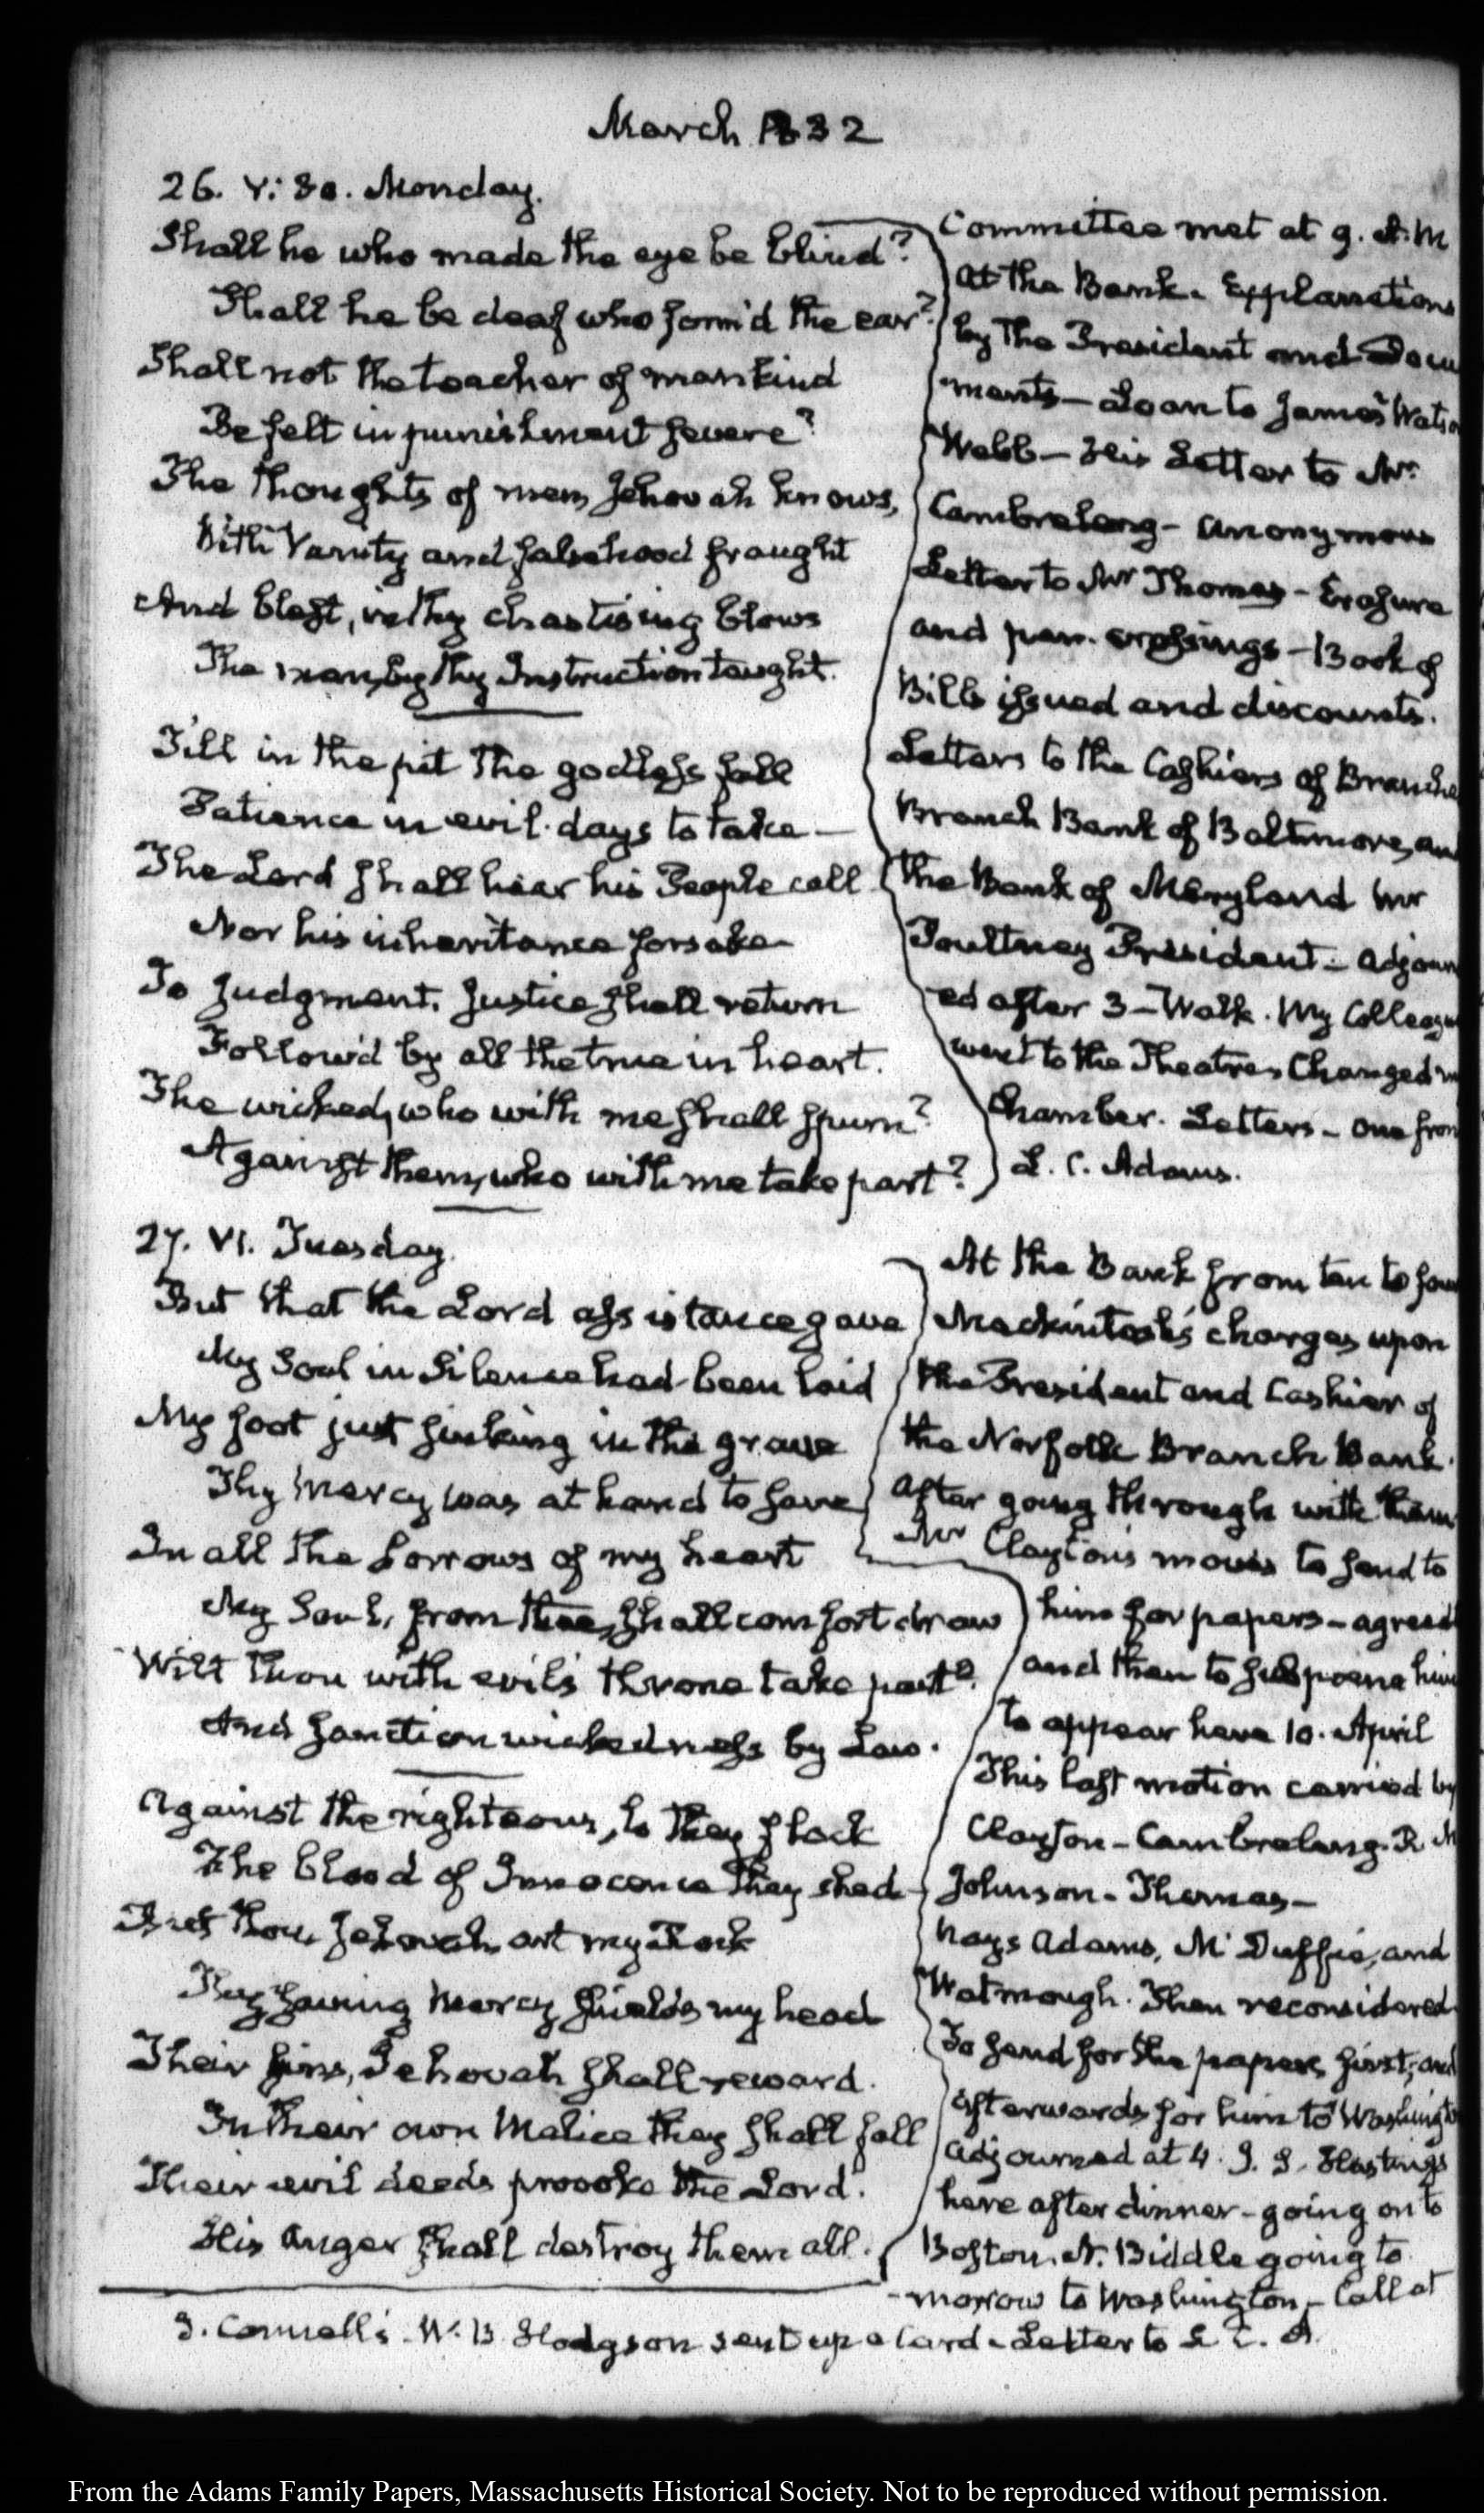 March 1832
26. V: 30. Monday.
Shall he who made the eye be blind?
Shall he be deaf who form'd the ear?
Shall not the teacher of mankind
Be felt in punishment severe?
The thoughts of men, Jehovah knows,
With Vanity and falsehood fraught
And blest, in thy chastising blows
The man, by thy Instruction taught.
Till in the pit the godless fall
Patience in evil days to take—
The Lord shall hear his People call
Nor his inheritance forsake
To Judgment, Justice shall return
Follow'd by all the true in heart.
The wicked, who with me shall spurn?
Against them, who with me take part?
Committee met at 9. A.M
at the Bank. Explanations
by the President and Docu
ments— Loan to James Watson
Webb— His Letter to Mr.
Cambreleng— anonymous
Letter to Mr Thomas— Erasure
and pen. crossings— Book of
Bills issued and discounts.
Letters to the Cashiers of Branche
Branch Bank of Baltimore, and
the Bank of Maryland Mr
Poultney President— adjourn
ed after 3— Walk. My Colleagu
went to the Theatre. Changed my
Chamber. Letters— one from
L. C. Adams.
27. VI. Tuesday.
But that the Lord assistance gave
My Soul in Silence had been laid
My foot just sinking in the grave
Thy Mercy was at hand to save
In all the Sorrows of my heart
My Soul, from thee, shall comfort draw
Wilt thou with evil's throne take part?
And sanction wickedness by Law.
Against the righteous, lo they flock
The blood of Innocence they shed—
But thou, Jehovah, art my Rock
Thy saving Mercy shields my head
Their sins, Jehovah shall reward.
In their own Malice they shall fall
Their evil deeds provoke the Lord.
His anger shall destroy them all.
At the Bank from ten to four
Mackintosh's charges upon
the President and Cashier of
the Norfolk Branch Bank.
After going through with them
Mr Clayton's moves to send to
him for papers— agreed
and then to subpoena him
to appear here 10. April
This last motion carried by
Clayton— Cambreleng. R. M
Johnson— Thomas—
Nays Adams, Mc Duffie, and
Watmough. Then reconsidered
To send for the papers first, and
afterwards for him to Washingto
adjourned at 4. Hastings
here after dinner— going on to
Boston. N. Biddle going to
-morrow to Washington— Call at
J. Connell's. W. B. Hodgson sent up a Card— Letter to L. C. A.
From the Adams Family Papers, Massachusetts Historical Society. Not to be reproduced without permission.